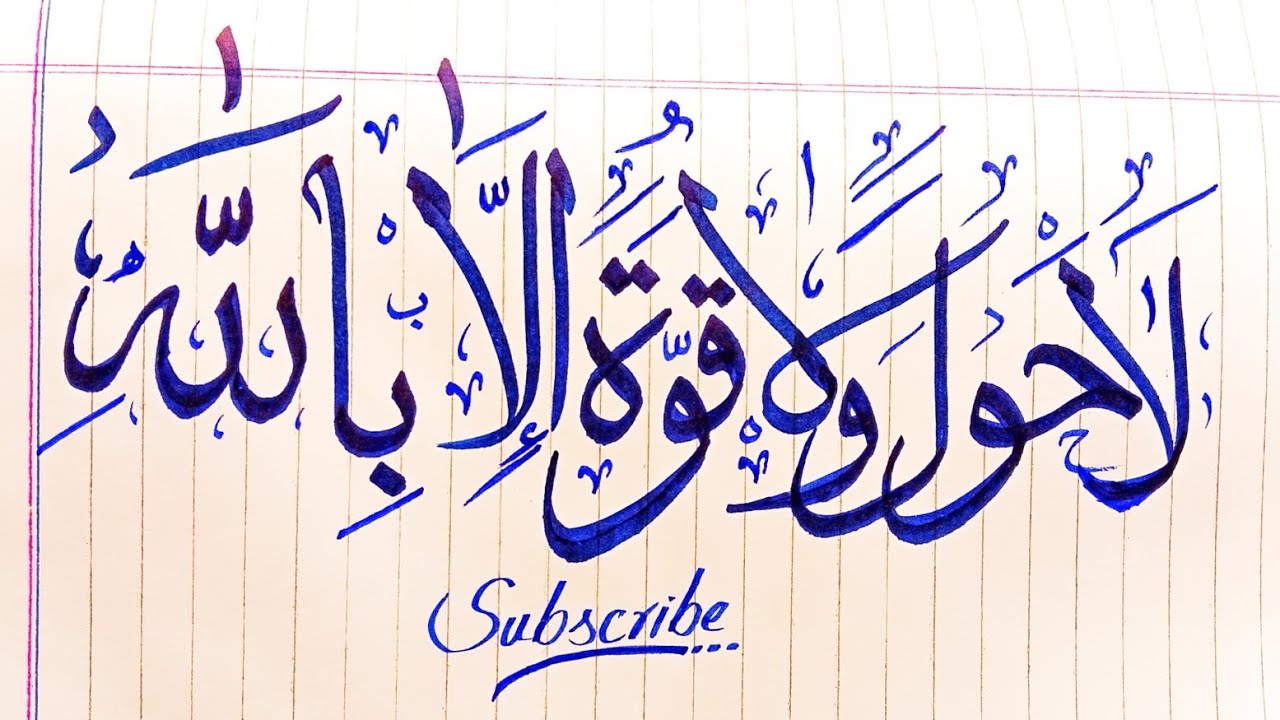 لَا حَوْلَ وَلَا قُوَّةَ إِلَّا بِاللّٰهِ
Subscribe...